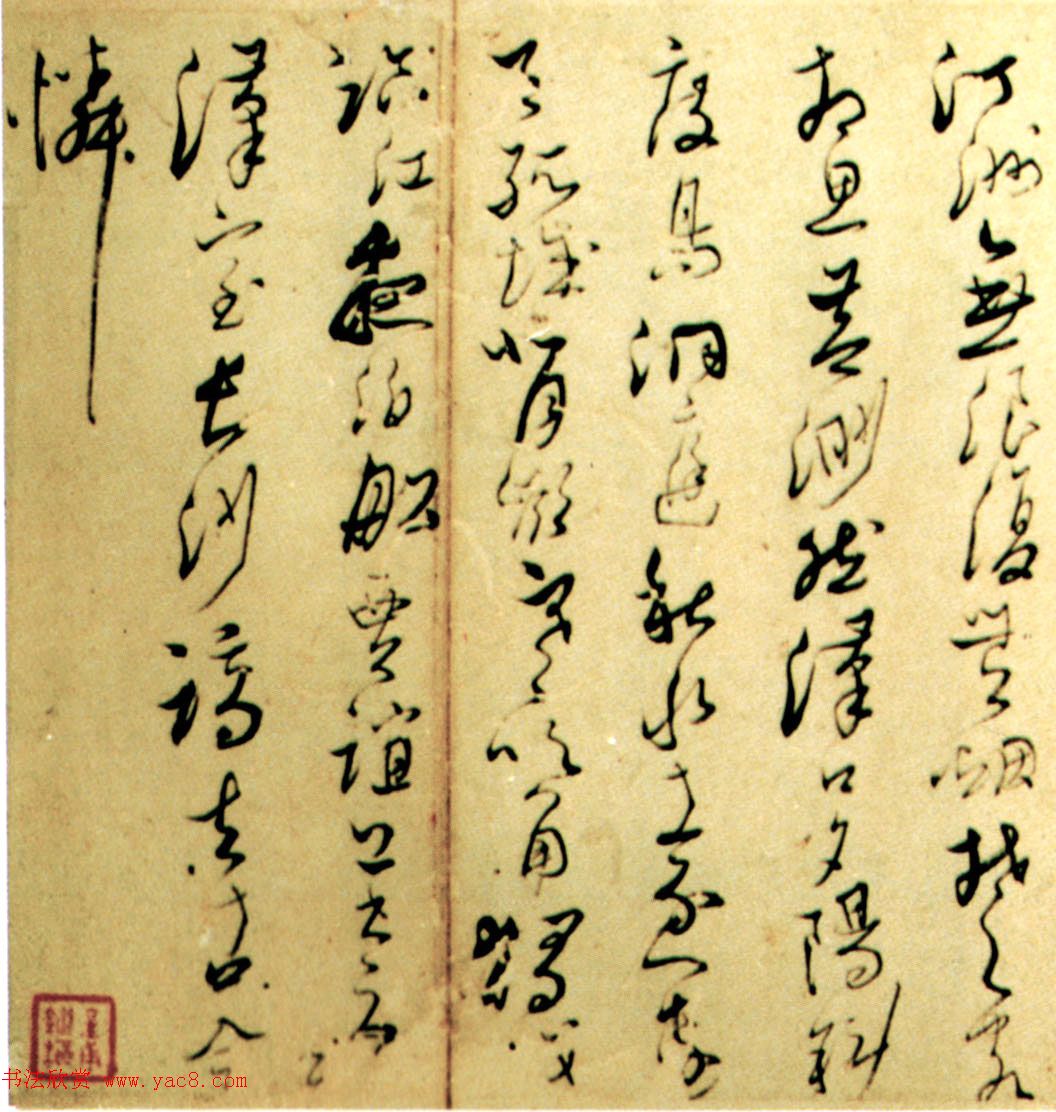 汀洲無浪復無烟楚客
相思益渺然漢口夕陽斜
度鳥洞庭秋水遠連
天孤城背嶺寒吹角獨戍
臨江夜泊船賈誼上書憂
漢室長沙謫去古今
憐
书法欣赏 www.yac8.com